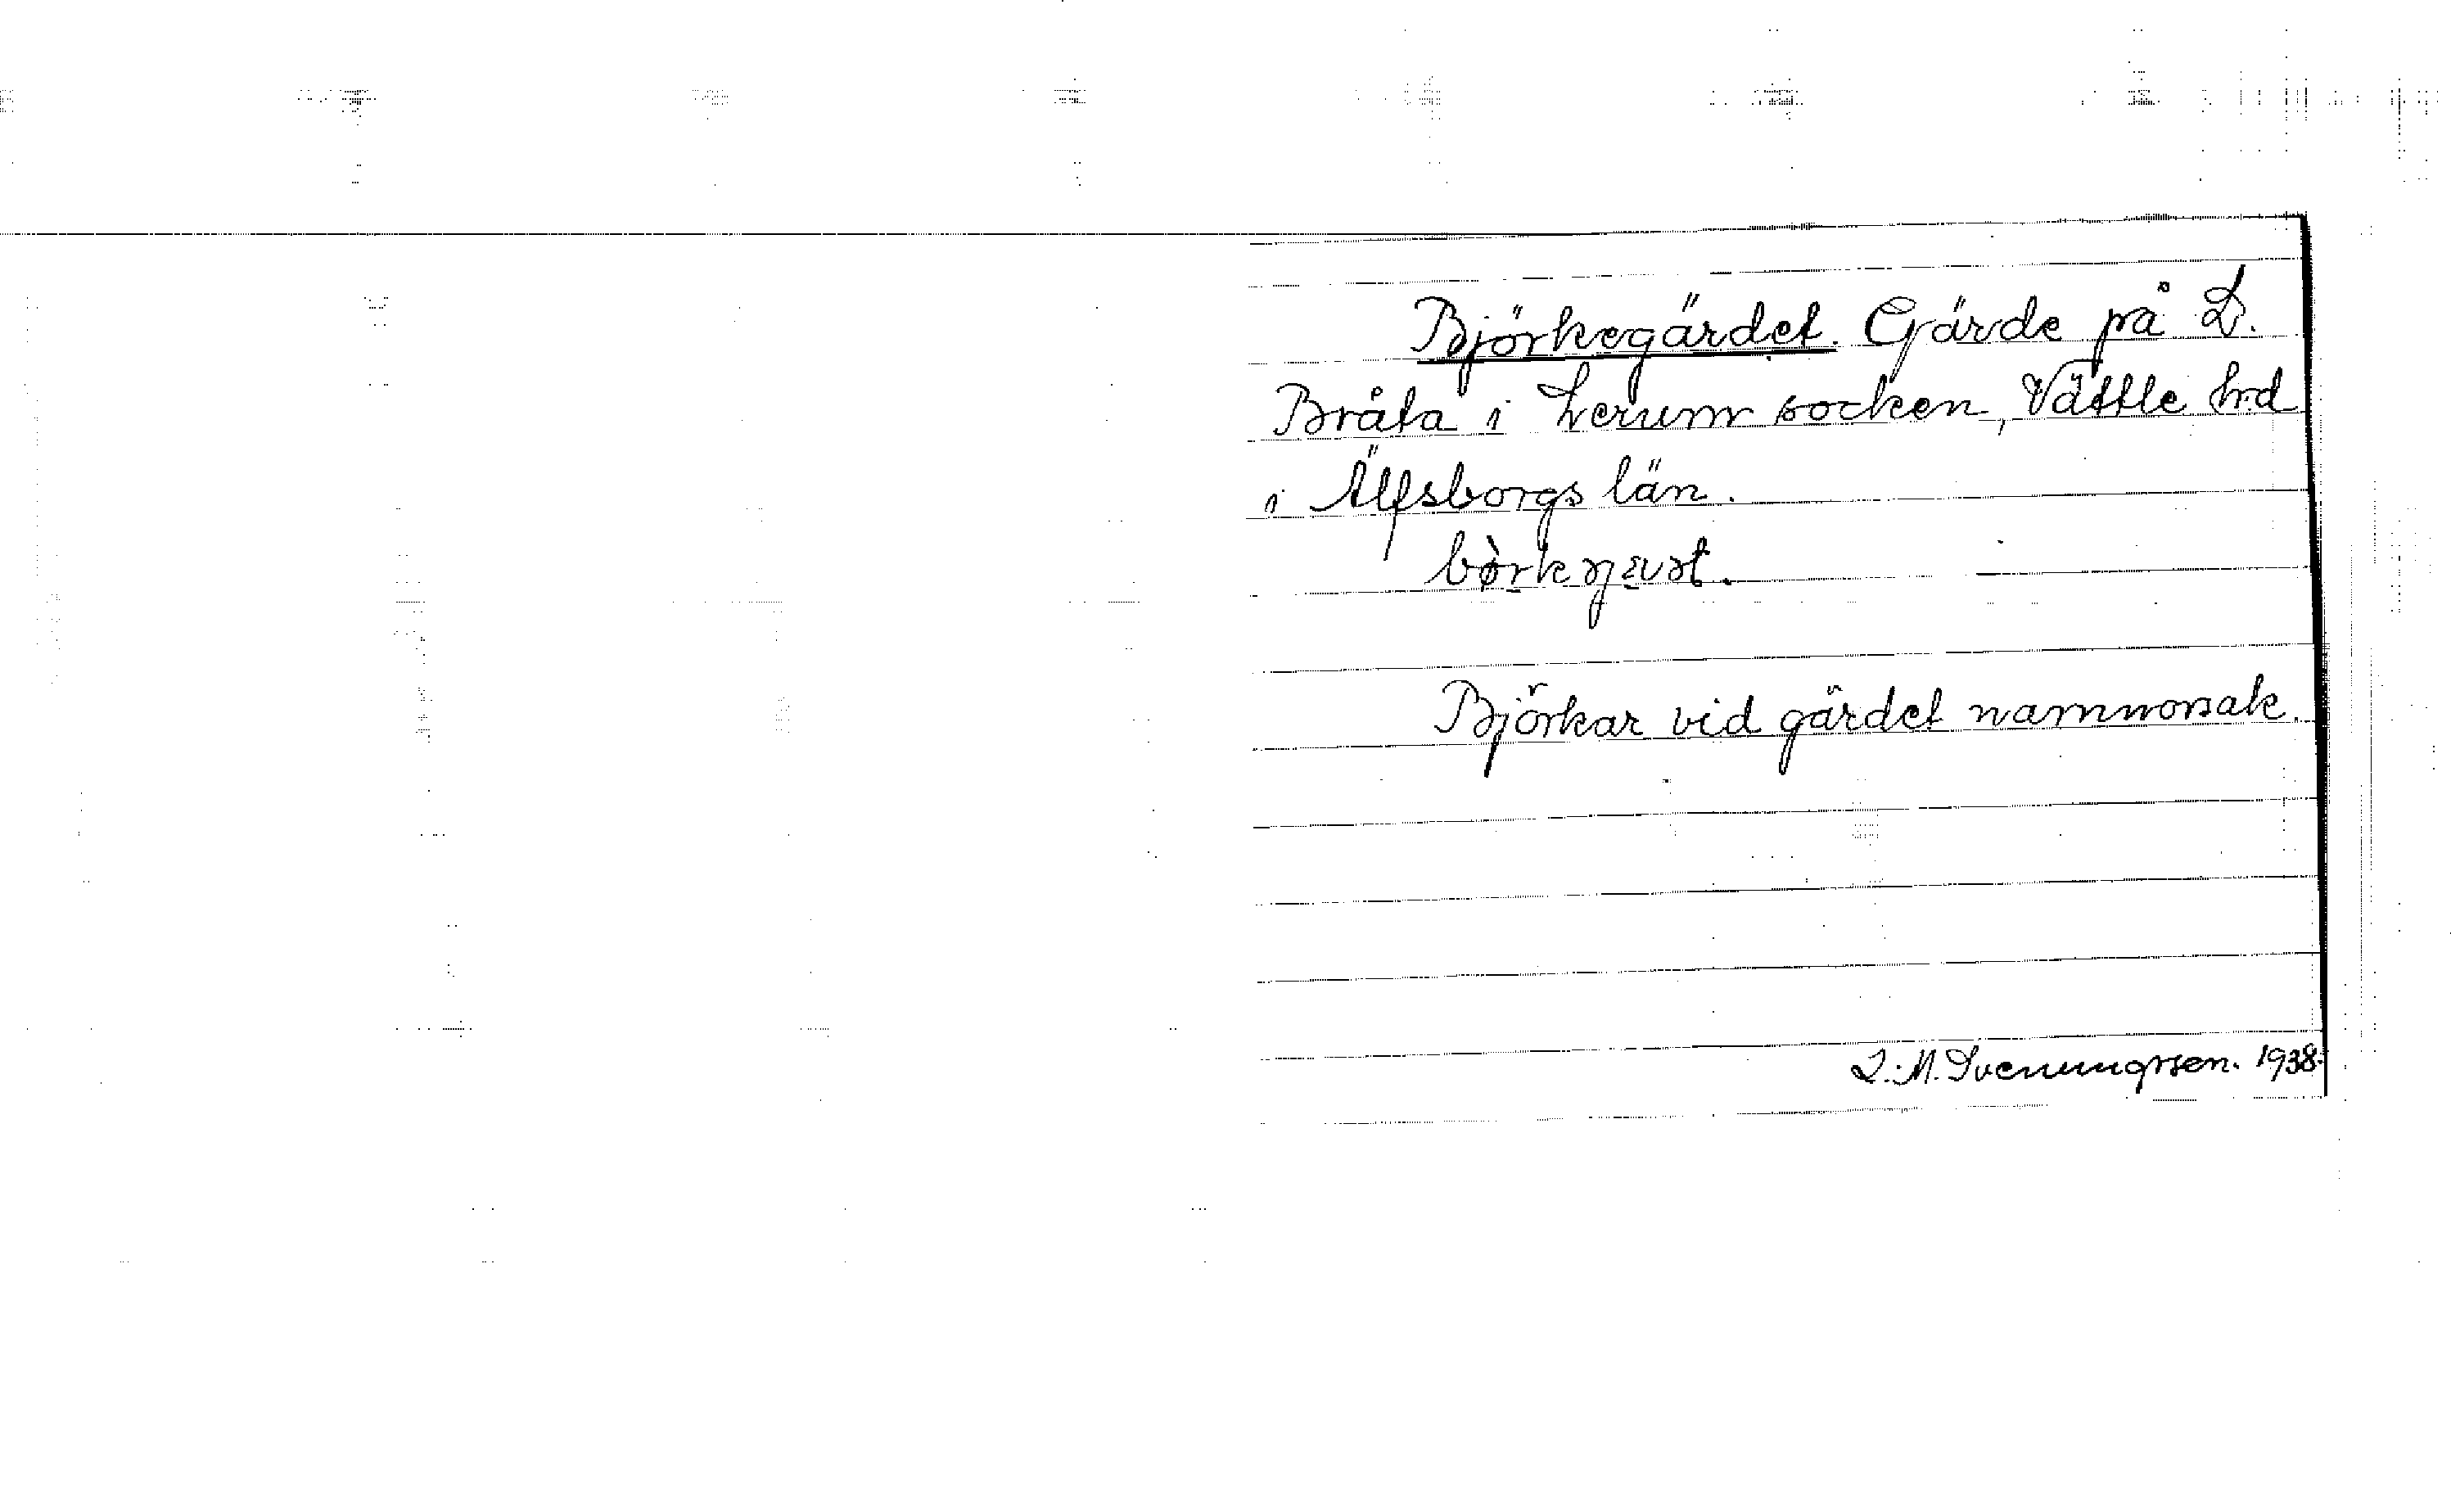 Björkegärdet. Gärde på L.
Bråta i Lerum socken, Vättle hrd
i Älfsborgs län.
Björkar vid gärdet namnorsak.
L. M. Svenungsson. 1938.